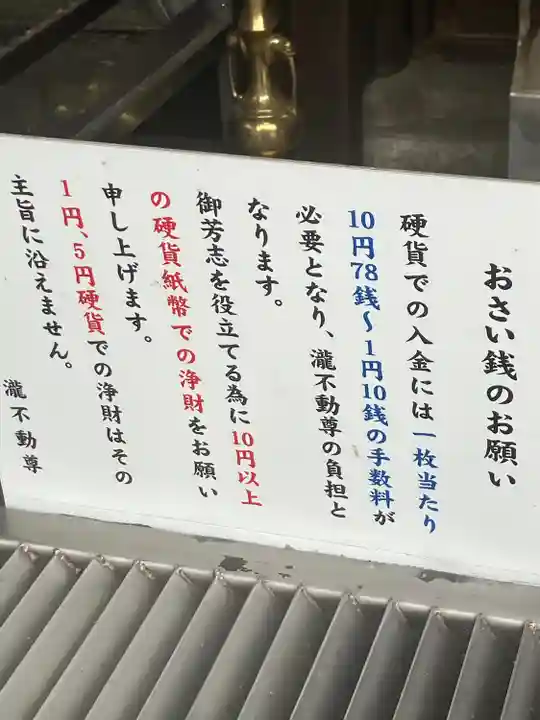 おさい銭のお願い
硬貨での入金には一枚当たり
10円78銭～1円10銭の手数料が
必要となり、瀧不動尊の負担と
なります。
御芳志を役立てる為に10円以上
の硬貨紙幣での浄財をお願い
申し上げます。
1円、5円硬貨での浄財はその
主旨に沿えません。
瀧不動尊